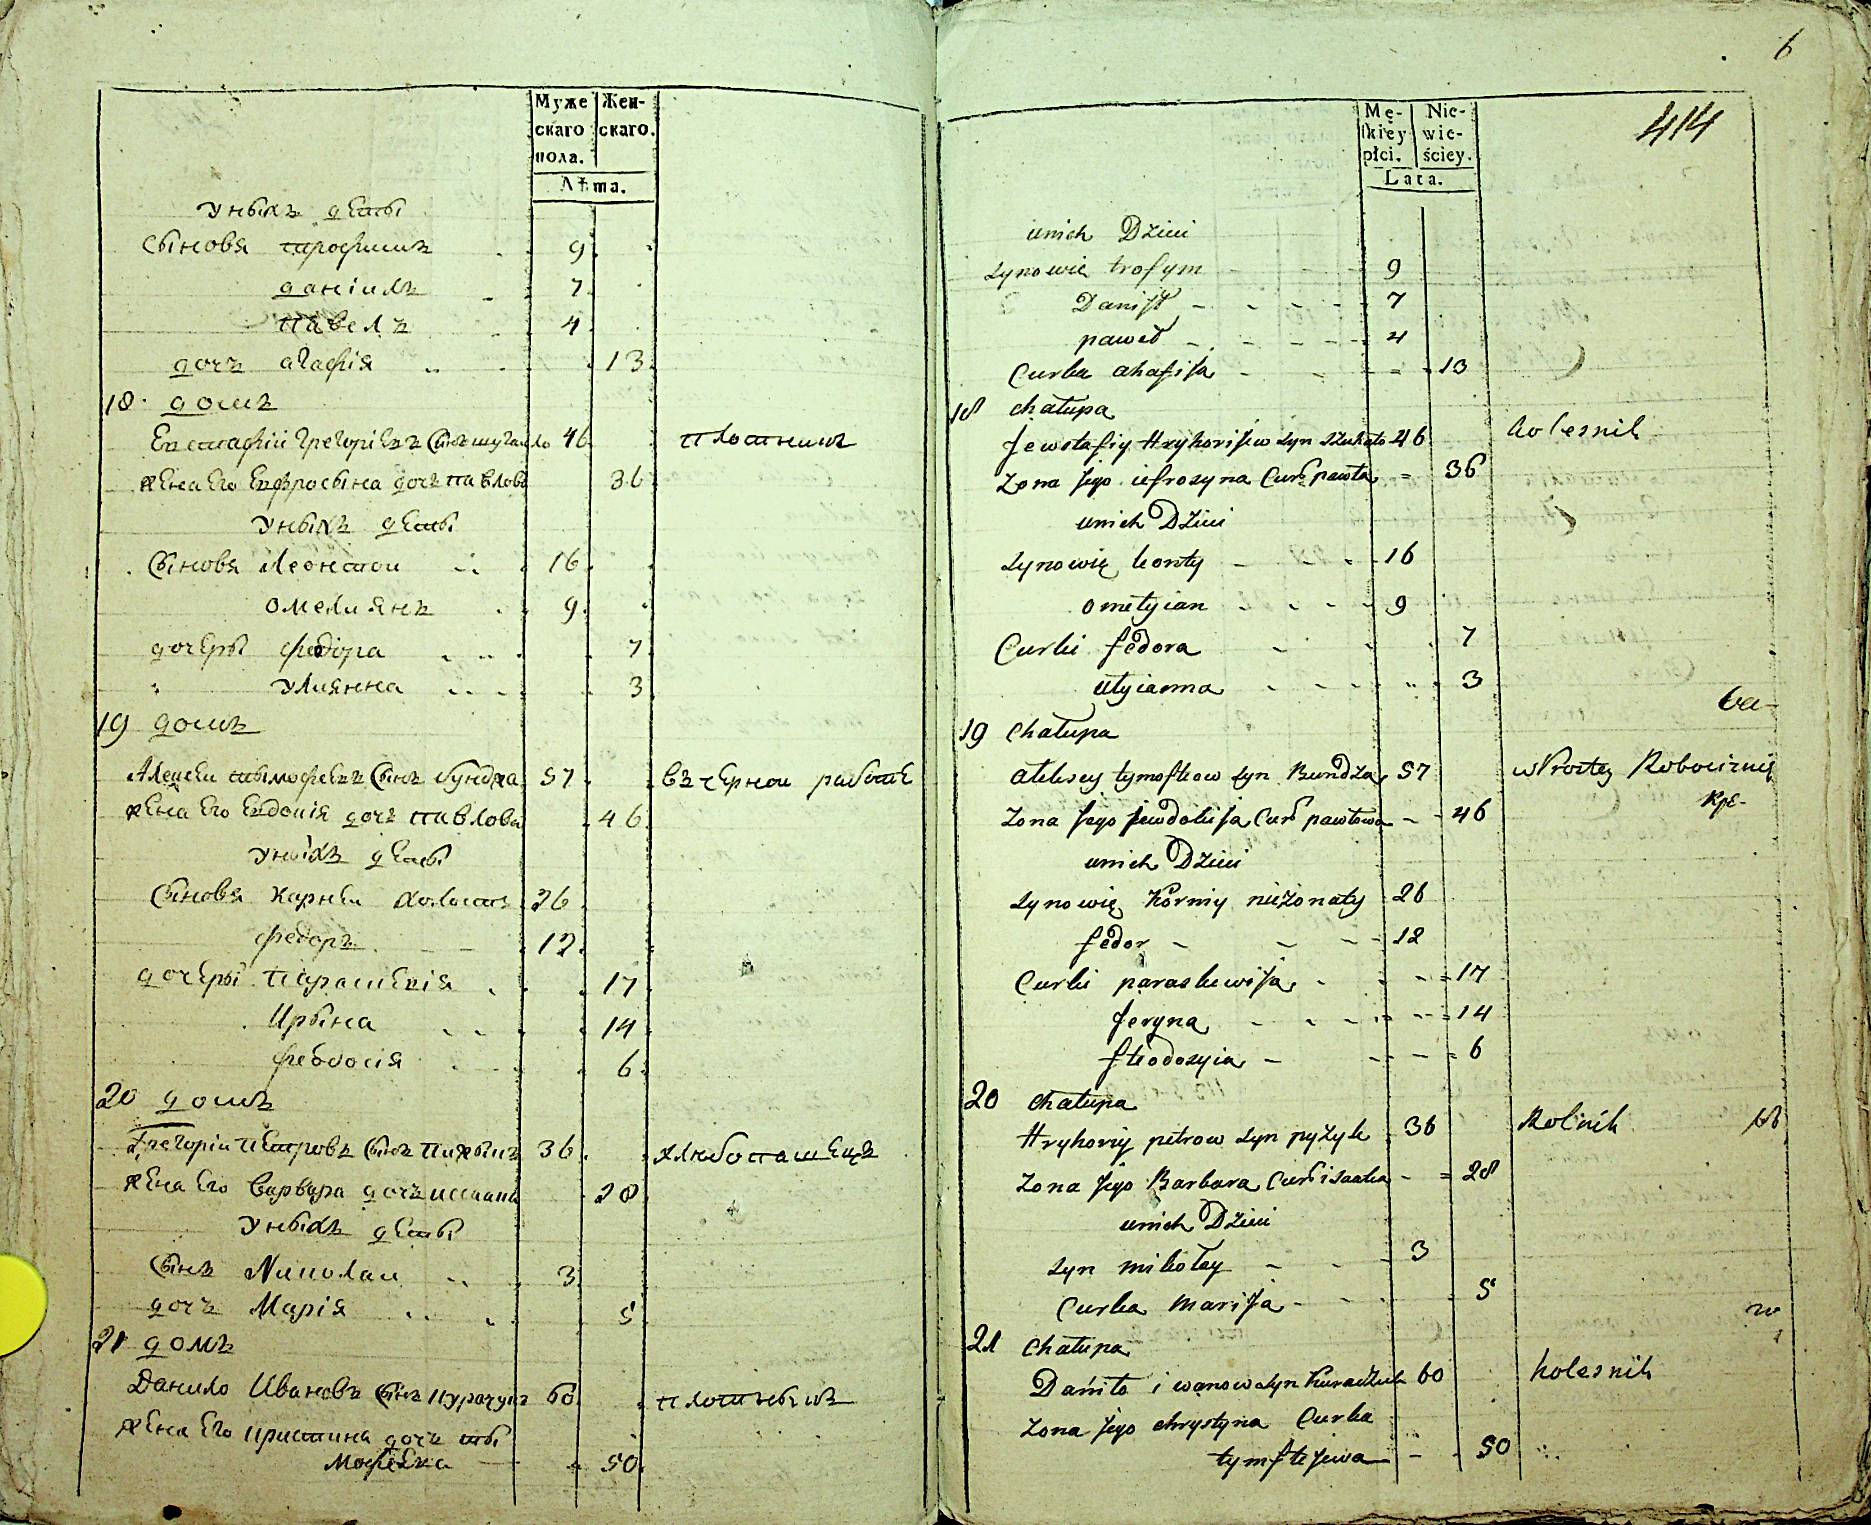 Муже Жен-
скаго скаго.
пола.
Лѣта.
Уныхъ дети
Сыновя трофимъ 9
данiилъ 7
павелъ 4
дочъ агафiя 13
18 домъ
Евстафiй Грегорiевъ Сынъ шукайло 46 плотникъ
жена Его Ефросына дочъ павлова 36
Уныхъ дети
Сыновя Леонтои 16
омелиянъ 9
дочеры федора 7
Улиянна 3
19 домъ
Алексеи тымофеевъ Сынъ бунджа 57 въ черной работе
жена Его Евдокiя дочъ павлова 46
Уныхъ дети
Сыновя Карнеи холостъ 26
федоръ 12
дочеры парасъкевiя 17
Ирына 14
феодосiя 6
20 домъ
Грегорiи петровъ Сынъ пижыкъ 36 хлебопашецъ
жена Его Варвара дочъ исаака 28
Уныхъ дети
Сынъ Николаи 3
дочъ Марiя 5
21 домъ
Данило Ивановъ Сынъ Курачукъ 60 плотныкъ
жена Его христина дочъ ты
мофеева 50
6
414
Mę- Nie-
skiey wie-
płci. ściey.
Lata.
unich Dzieci
Synowie trofym 9
Daniił 7
paweł 4
Curka ahafija 13
18 chałupa
Jewstafiy Hryhorijew syn szukało 46 kolesnik
Zona Jego iefrozyna Curk pawła 36
unich Dzieci
Synowię Leonty 16
omelyian 9
Curki fedora 7
ulyianna 3
19 chałupa
alexsey tymofteow syn Bundza 57 w Prostey Roboćizniej
Zona Jego Jewdokija Curk pawłowa 46
unich Dzieci
Synowię Korniy nieżonaty 26
fedor 12
Curki paraskewija 17
Jeryna 14
fteodozyia 6
20 chałupa
Hryhoriy petrow syn pyzyk 36 Rolnik
Zona Jego Barbara Curk isaaka 28
unich Dzieci
syn mikołay 3
Curka marija 5
21 chałupa
Daniło iwanow syn Kuraczuk 60 kolesnik
Zona Jego chrystyna Curka
tymftejewa 50